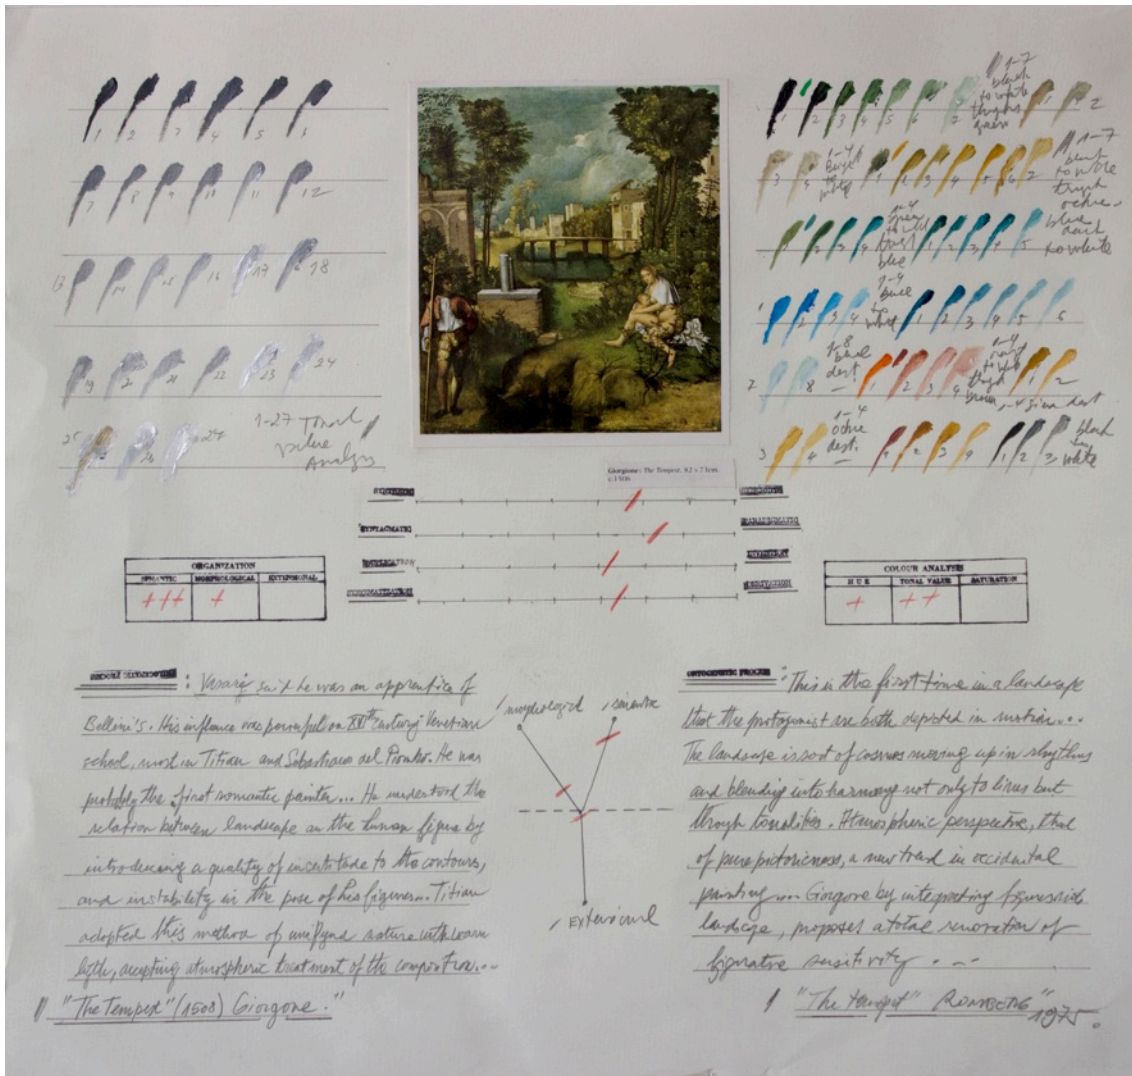 1 2 3 4 5 6
7 8 9 10 11 12
13 14 15 16 17 18
19 2 21 22 23 24
25 26 27
1-27 Tonal
Value
Analysis
1-7
black
to white
through
green
1 2 3 4 5 6 7 1 2
3 4 1 2 3 4 5 6 7
1-7
to white
ochre
1 2 3 4 1 2 3 4 5
blue
dark
to white
1 2 3 4 1 2 3 4 5 6
7 8 1 2 3 4 1 2
1-8
blue
dest.
1-4
3 4 1 2 3 4 1 2 3
1-4
ochre
dest.
black
white
Giorgione: The Tempest, 82 × 71cm.
SYNTAGMATIC
ORGANIZATION
SEMANTIC MORPHOLOGICAL EXTENSIONAL
+++ +
COLOUR ANALYSIS
HUE TONAL VALUE SATURATION
+ ++
: Vasari said he was an apprentice of
Bellini's. His influence was powerful on XVIth century Venetian
school, most in Titian and Sebastiano del Piombo. He was
probably the first romantic painter... He understood the
relation between landscape an the human figure by
introducing a quality of incertitude to the contours,
and instability in the pose of his figures... Titian
adopted this method of nature with warm
accepting atmospheric treatment of the composition...
"The Tempest" (1508) Giorgone."
morphological
semantic
EXTENSIONAL
ONTOGENETIC PROCESS : This is the first time in a landscape
that the protagonist are both depicted in motion...
The landscape is sort of cosmos moving up in rhythms
and blending into harmony not only to lines but
through tonalities. Atmospheric perspective, that
of pure pictoricness, a new trend in occidental
painting... Giorgone by integrating figures in
landscape, proposes a total renovation of
figurative sensitivity . --
"The tempest" 1975.